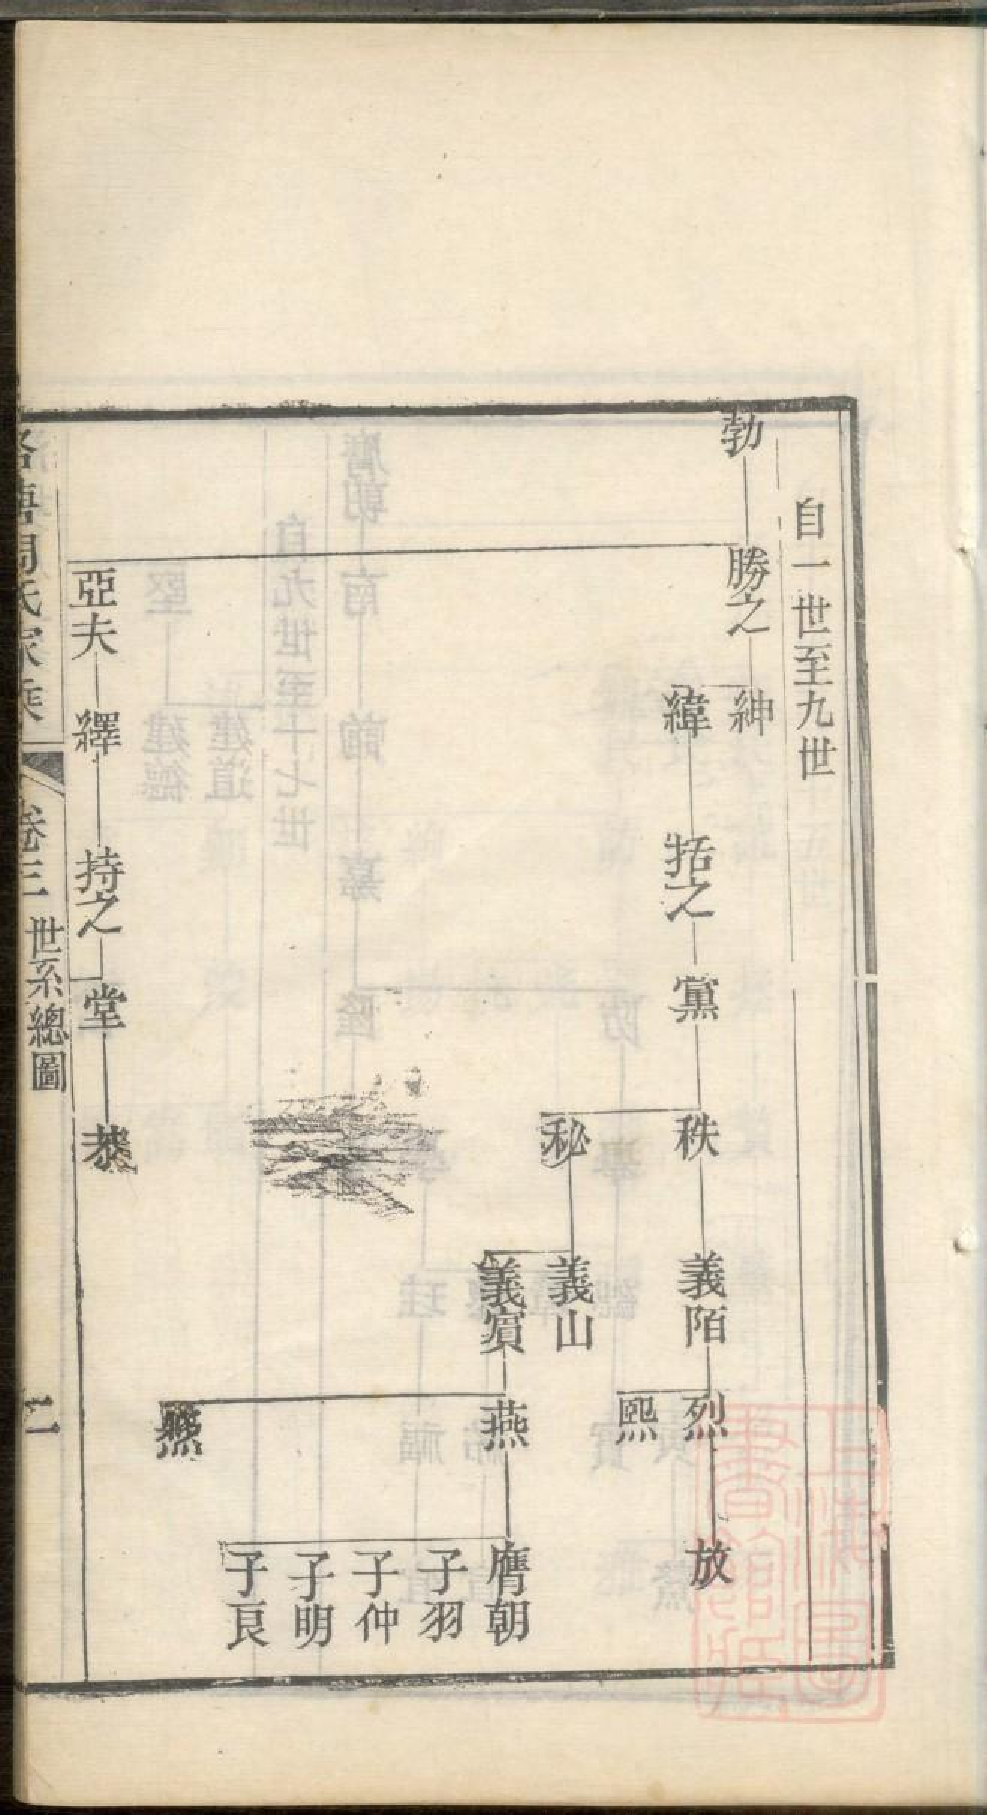 自一世至九世
勃
勝之
紳
緯
括之
黨
秩
秘
義陌
義山
義賓
烈
熙
燕
放
膺朝
子羽
子仲
子明
子良
亞夫
繹
持之
堂
恭
周氏家乘
卷三
世系總圖
二
上海圖書館藏